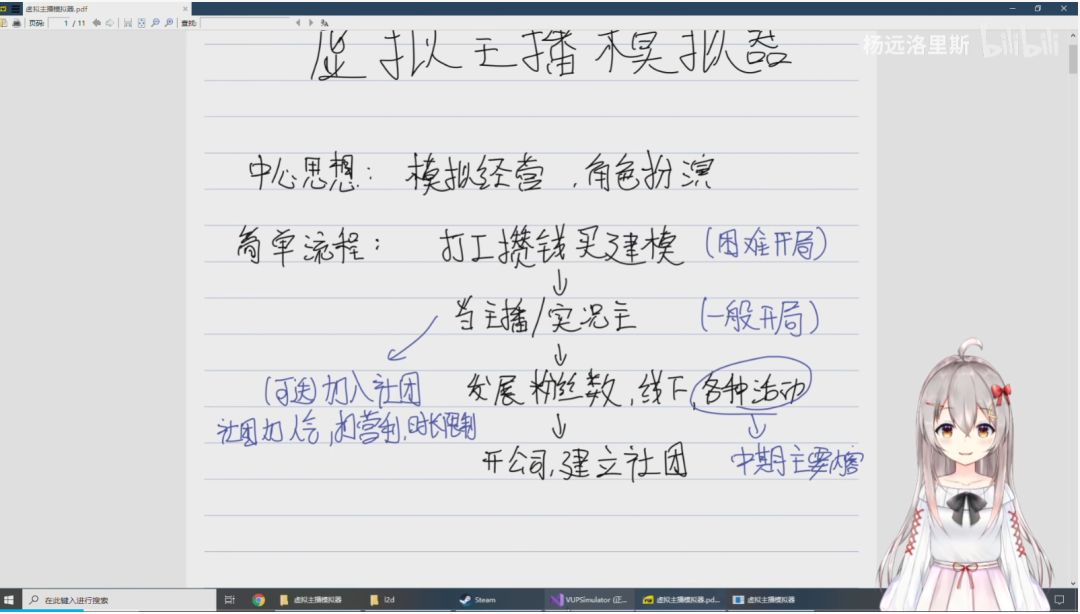 虚拟主播模拟器.pdf
页码: 1 / 11 查找:
杨远洛里斯 bilibili
虚拟主播模拟器
中心思想：模拟经营，角色扮演
简单流程： 打工攒钱买建模 (困难开局)
当主播/实况主 (一般开局)
(可选)加入社团 发展粉丝数,线下,各种活动
社团加人气,扣营利,时长限制
开公司,建立社团 中期主要内容
在此键入进行搜索 虚拟主播模拟器 l2d Steam VUPSimulator (正... 虚拟主播模拟器.pd... 虚拟主播模拟器